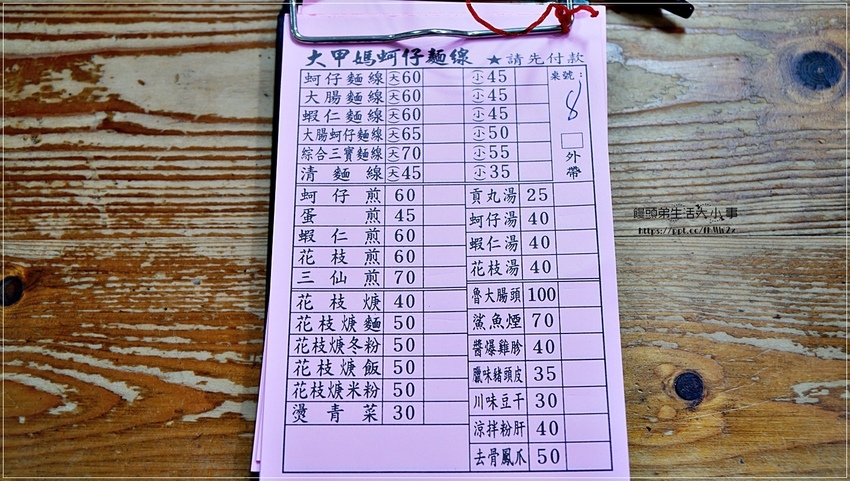 大甲媽蚵仔麵線 ★請先付款
蚵仔麵線 大60 小45
大腸麵線 大60 小45
蝦仁麵線 大60 小45
大腸蚵仔麵線 大65 小50
綜合三寶麵線 大70 小55
清麵線 大45 小35
桌號：
8
外帶
蚵仔煎 60
蛋煎 45
蝦仁煎 60
花枝煎 60
三仙煎 70
花枝焿 40
花枝焿麵 50
花枝焿冬粉 50
花枝焿飯 50
花枝焿米粉 50
燙青菜 30
貢丸湯 25
蚵仔湯 40
蝦仁湯 40
花枝湯 40
魯大腸頭 100
鯊魚煙 70
醬爆雞胗 40
臘味豬頭皮 35
川味豆干 30
涼拌粉肝 40
去骨鳳爪 50
饅頭弟生活大小事